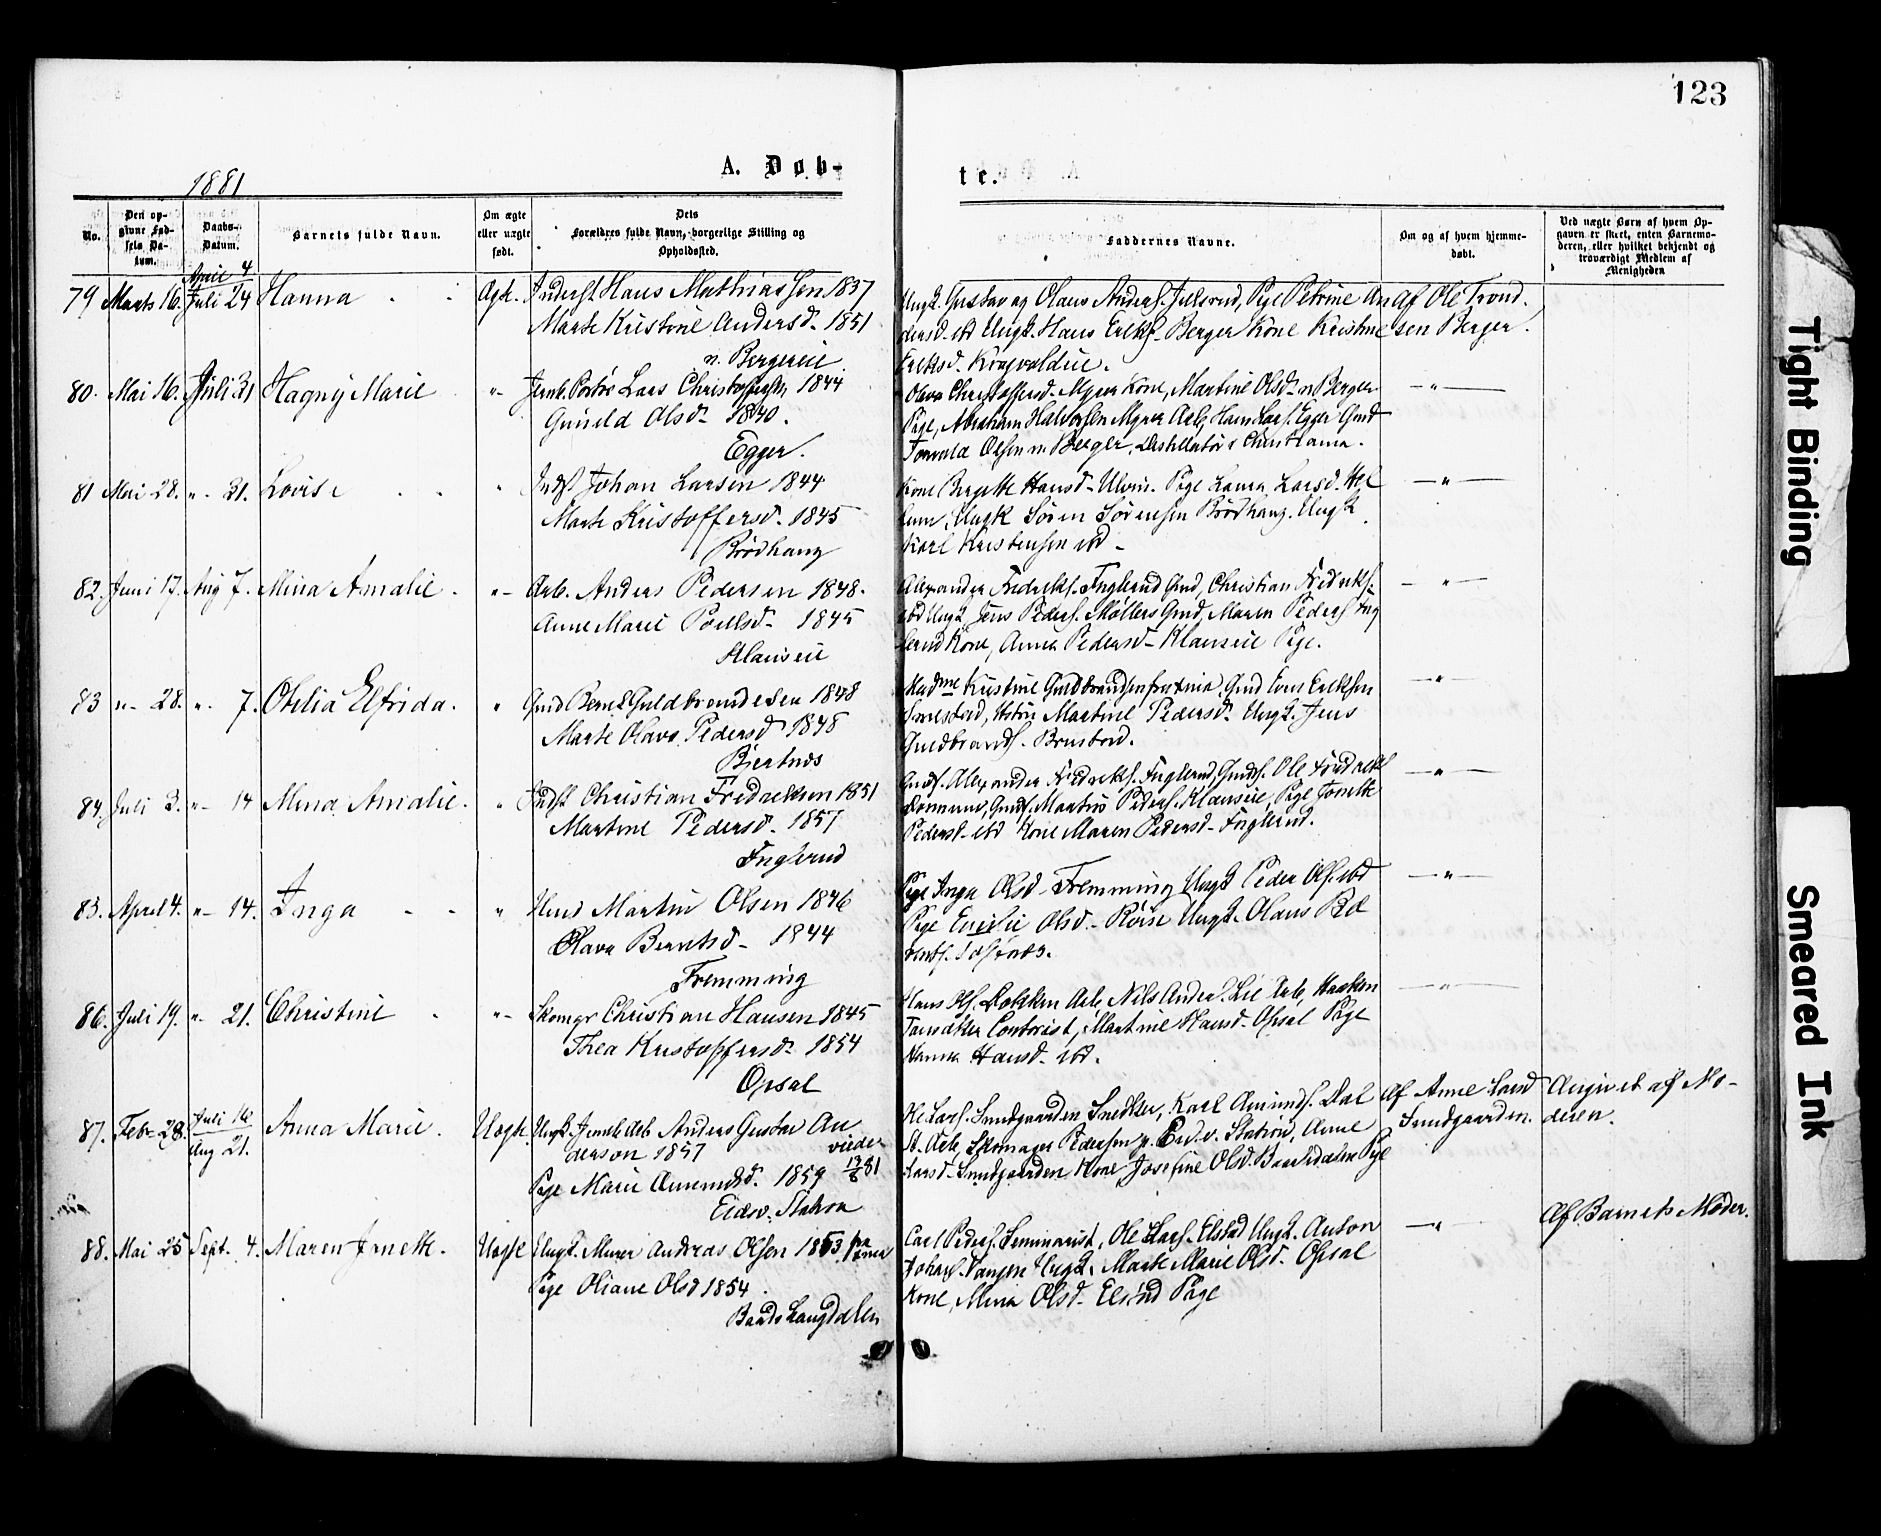 123
1881
A. Døb-
te.
No.
Den op-
givne Fød-
sels Da-
tum.
Daabs-
Datum.
Barnets fulde Navn.
Om ægte
eller uægte
født.
Dets
Forældres fulde Navn, borgerlige Stilling og
Opholdssted.
Faddernes Navne.
Om og af hvem hjemme-
døbt.
Ved uægte Børn af hvem Op-
gaven er skeet, enten Barnemo-
deren, eller hvilket bekjendt og
troværdigt Medlem af
Menigheden
79 Marts 16. April 4 Juli 24 Hanna Ægte. Inderst Hans Mathiassen 1837
Marte Kristine Andersd. 1851
n. Bergereie
Ungk. Gustav og Olaus Anders. Julsrud, Pige Petrine An
dersd. ibd Ungk. Hans Eriks. Berger Kone Kristine
Eriksd.
Af Ole Trond.
sen Berger.
80. Mai 16. Juli 31 Hagny Marie "- Lars Christoffersen 1844
Gunild Olsd. 1840.
Egger.
Olava Christoffersd. Myrer Kone, Martine Olsd. n Berger
Pige, Abraham Halvorsen Myrer Arb, Hans Lars. Egger Gmd
Olsen n Berger, Destillatør i Christiania.
—"—
81 Mai 28. "- 31. Lovise " Indst Johan Larsen 1844
Marte Kristoffersd. 1845
Brødhang
Kone Birgitte Hansd. Ulvin. Pige Laura Larsd.
Ungk Søren Sørensen Brødhang. Ungk
Karl Kristensen ibd -
—"—
82. Juni 17. Aug 7. Mina Amalie. "- Arb. Anders Pedersen 1848.
Anne Marie Poulsd. 1845
Klauseie
Alexander Fredriks. Englerud Gmd, Christian Fredriks.
ibd Ungk Jens Peders. Møllers Gmd, Maren Peders. Eng
lerud Kone, Anna Pedersd. Klauseie Pige.
—"—
83 "- 28. "- 7. Otilia Elfrida. " Gmd Bernt Guldbrandsen 1848
Marte Olava Pedersd 1848
Bjertnes
Madme Kristine Guldbrandsen Gmd Even Eriksen
Martine Pedersd. Ungk. Jens
Guldbrands. Brustad.
—"—
84. Juli 3. "- 14 Mina Amalie. " Indst Christian Fredriksen 1851
Martine Pedersd. 1857
Englerud
Gmds. Alexander Fredriks. Englerud, Gmds. Ole Fredriks
Gmds. Martin Peders. Klauseie, Pige Jonette
Pedersd. ibd Kone Maren Pedersd. Englerud.
—"—
85. April 4. "- 14. Inga " Martin Olsen 1846
Olava Berntsd. 1844
Fremming
Pige Inga Olsd. Fremming Ungk Peder Ols. ibd
Pige Emilie Olsd. Røise Ungk. Olaus Be
—"—
86. Juli 19. "- 21. Christine "- Skomgr Christian Hansen 1845
Thea Kristoffersd. 1854
Opsal
Hans Ols. Arb, Nils Anders. Lie Arb, Haaken
Martine Hansd. Opsal Pige
Hanna Hansd. ibd.
—"—
87. Feb. 28. Juli 16 Aug 21. Anna Marie. Uægte. Ungk. Jernb. Arb Anders Gustav An
derson 1857
Pige Marie Amundsd. 1859
Eidsv. Station
Ole Lars. Sundgaarden Snedker, Karl Amunds. Dal
St. Arb, Skomager Pedersen p. Eidsv. Station, Anne
Larsd. Sundgaarden Kone, Josefine Olsd. Baardsdalen Pige
Af Anne Larsd
Sundgaarden.
Angivet af Mo-
deren.
88. Mai 25 Sept. 4. Maren Janette. Uægte Ungk. Murer Andreas Olsen 1853
Pige Oliane Olsd 1854.
Carl Peders. Seminarist, Ole Lars. Elstad Ungk. Anton
Johans. Vangen Ungk. Marte Marie Olsd. Opsal
Kone, Mina Olsd. Pige
—"—
Af Barnets Moder.
Tight Binding
Smeared Ink